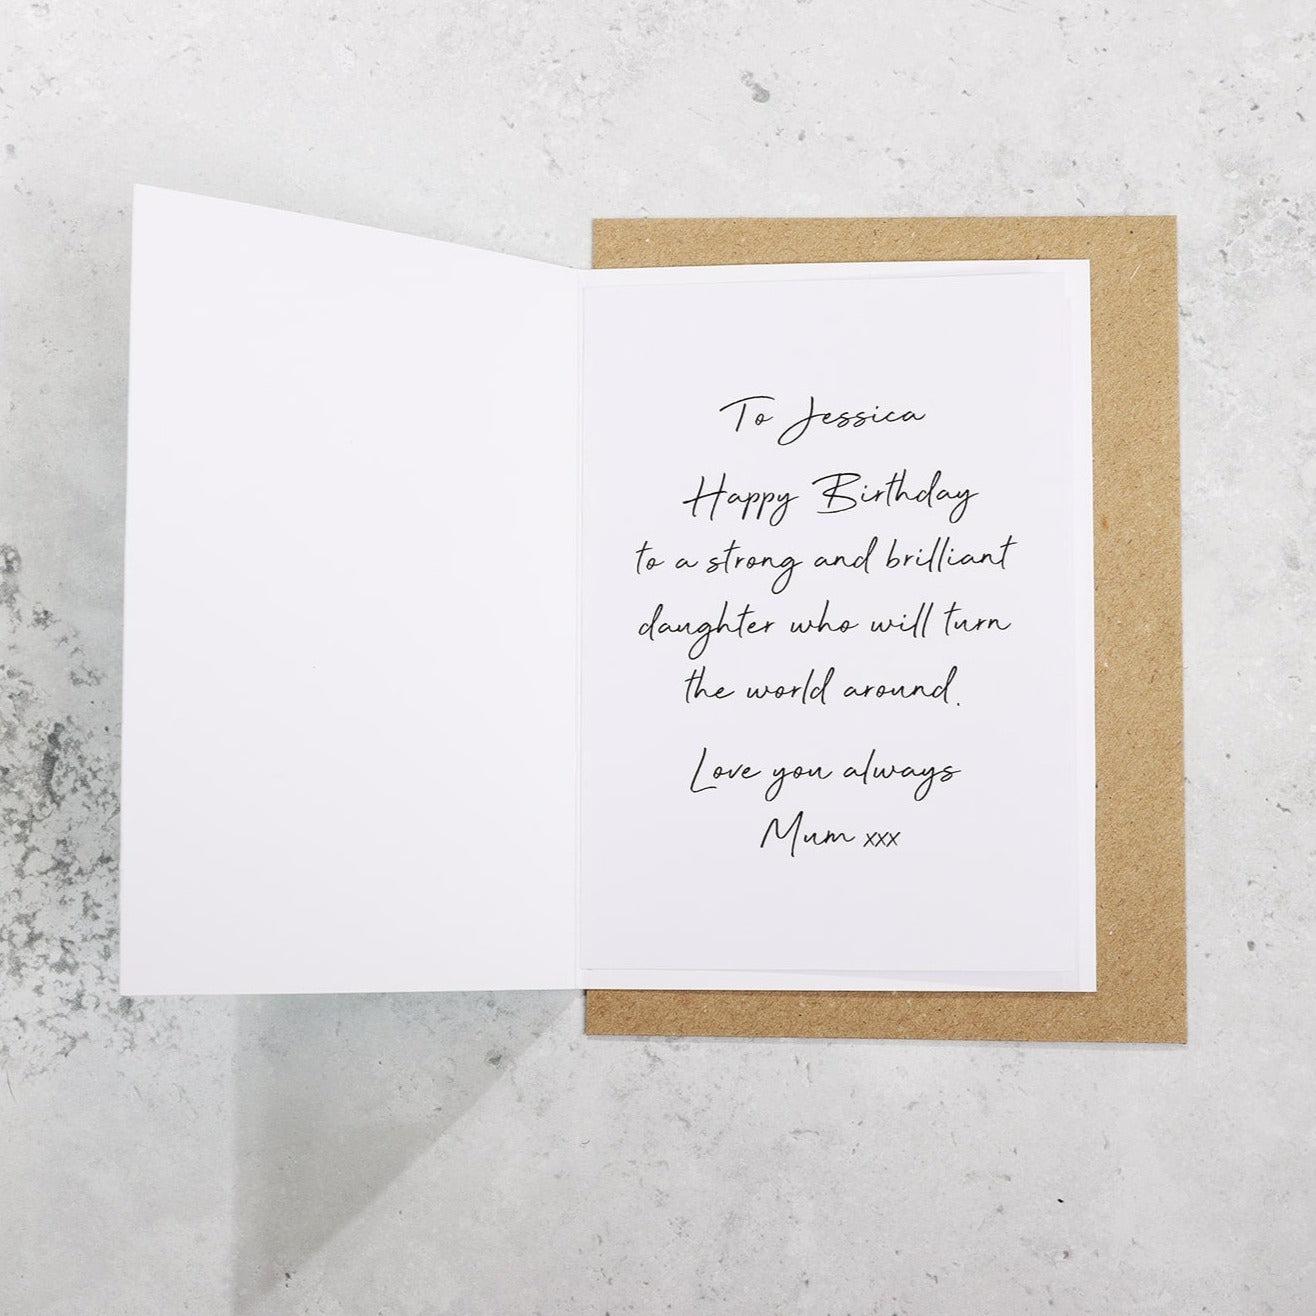 To Jessica
Happy Birthday
to a strong and brilliant
daughter who will turn
the world around.
Love you always
Mum xxx